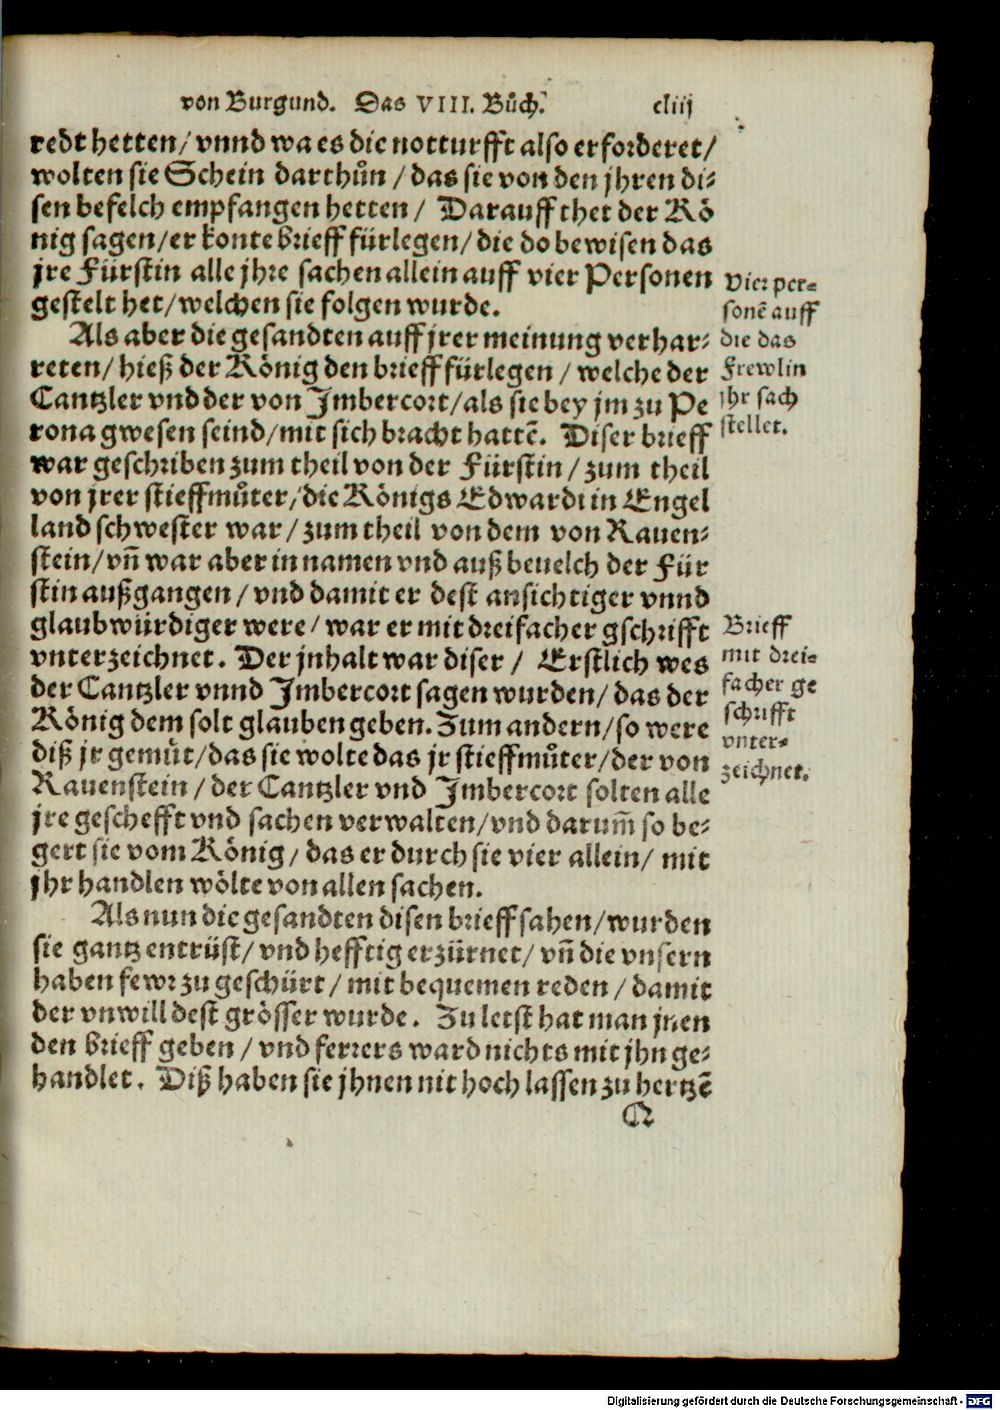 von Burgund. Das VIII. Bůch. cliij
redt hetten/ vnnd wa es die notturfft also erforderet/
wolten sie Schein darthůn / das sie von den jhren di-
sen befelch empfangen hetten / Darauff thet der Kö
nig sagen/er konte brieff fürlegen/ die do bewisen das
jre Fürstin alle jhre sachen allein auff vier Personen
gestelt het/welchen sie folgen wurde.
Vier per-
sonē auff
die das
Frewlin
jhr sach
stellet.
Als aber die gesandten auff jrer meinung verhar-
reten/ hieß der König den brieff fürlegen / welche der
Cantzler vnd der von Imbercort/als sie bey jm zu Pe
rona gwesen seind/mit sich bracht hattē. Diser brieff
war geschriben zum theil von der Fürstin / zum theil
von jrer stieffmůter/die Königs Edwardi in Engel
land schwester war / zum theil von dem von Rauen-
stein/vn̄ war aber in namen vnd auß beuelch der Für
stin außgangen / vnd damit er dest ansichtiger vnnd
glaubwürdiger were / war er mit dreifacher gschrifft
vnterzeichnet. Der jnhalt war diser / Erstlich wes
der Cantzler vnnd Imbercort sagen wurden/ das der
König dem solt glauben geben. Zum andern/so were
diß jr gemüt/das sie wolte das jr stieffmůter/der von
Rauenstein / der Cantzler vnd Imbercort solten alle
jre geschefft vnd sachen verwalten/vnd darum̄ so be-
gert sie vom König / das er durch sie vier allein/ mit
jhr handlen wölte von allen sachen.
Brieff
mit drei-
facher ge
schrifft
vnter-
zeichnet.
Als nun die gesandten disen brieff sahen/wurden
sie gantz entrüst/ vnd hefftig erzürnet/ vn̄ die vnsern
haben fewr zu geschürt / mit bequemen reden / damit
der vnwill dest grösser wurde. Zu letst hat man jnen
den brieff geben / vnd ferrers ward nichts mit jhn ge-
handlet. Diß haben sie jhnen nit hoch lassen zu hertzē
Q
Digitalisierung gefördert durch die Deutsche Forschungsgemeinschaft - DFG